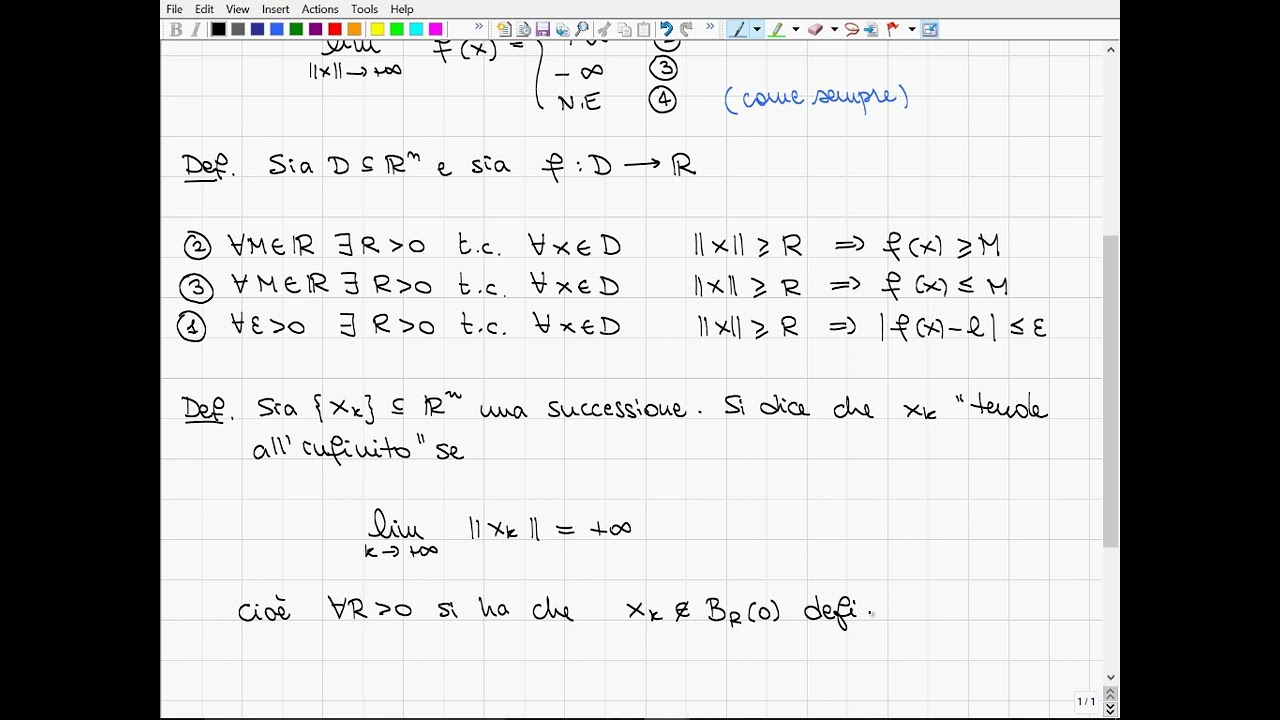 File Edit View Insert Actions Tools Help
B I
lim f(x) = { +∞ ②
||x||→+∞ -∞ ③
N.E ④ (come sempre)
Def. Sia D ⊆ ℝⁿ e sia f : D → ℝ
② ∀M∈ℝ ∃ R>0 t.c. ∀x∈D ||x|| ≥ R ⇒ f(x) ≥ M
③ ∀M∈ℝ ∃ R>0 t.c. ∀x∈D ||x|| ≥ R ⇒ f(x) ≤ M
① ∀ε>0 ∃ R>0 t.c. ∀x∈D ||x|| ≥ R ⇒ |f(x)-l| ≤ ε
Def. Sia {xₖ} ⊆ ℝⁿ una successione. Si dice che xₖ "tende
all'infinito" se
lim ||xₖ|| = +∞
k→+∞
cioè ∀R>0 si ha che xₖ ∉ B_R(0) defi.
1 / 1